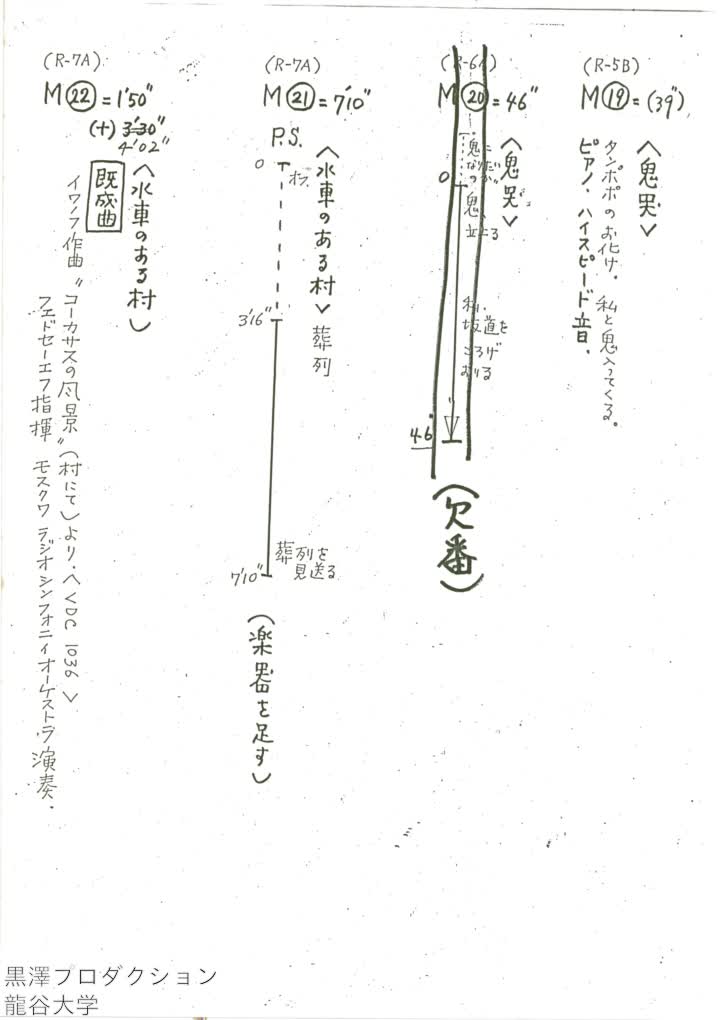 (R-5B)
M⑲=(39")
〈鬼哭〉
タンポポのお化け、私と鬼入ってくる。
ピアノ、ハイスピード音、
(R-6A)
M⑳=46"
〈鬼哭〉
0
私、
坂道を
ころげ
おりる
46"
(欠番)
(R-7A)
M㉑=7'10"
P.S.
〈水車のある村〉葬列
0
オフ
3'16"
葬列を
見送る
7'10"
(楽器を足す)
(R-7A)
M㉒=1'50"
(+) 3'30"
4'02"
〈水車のある村〉
既成曲
イワノフ作曲"コーカサスの風景"(村にて)より.〈VDC 1036〉
フェドセーエフ指揮 モスクワ ラジオ シンフォニィオーケストラ演奏.
黒澤プロダクション
龍谷大学